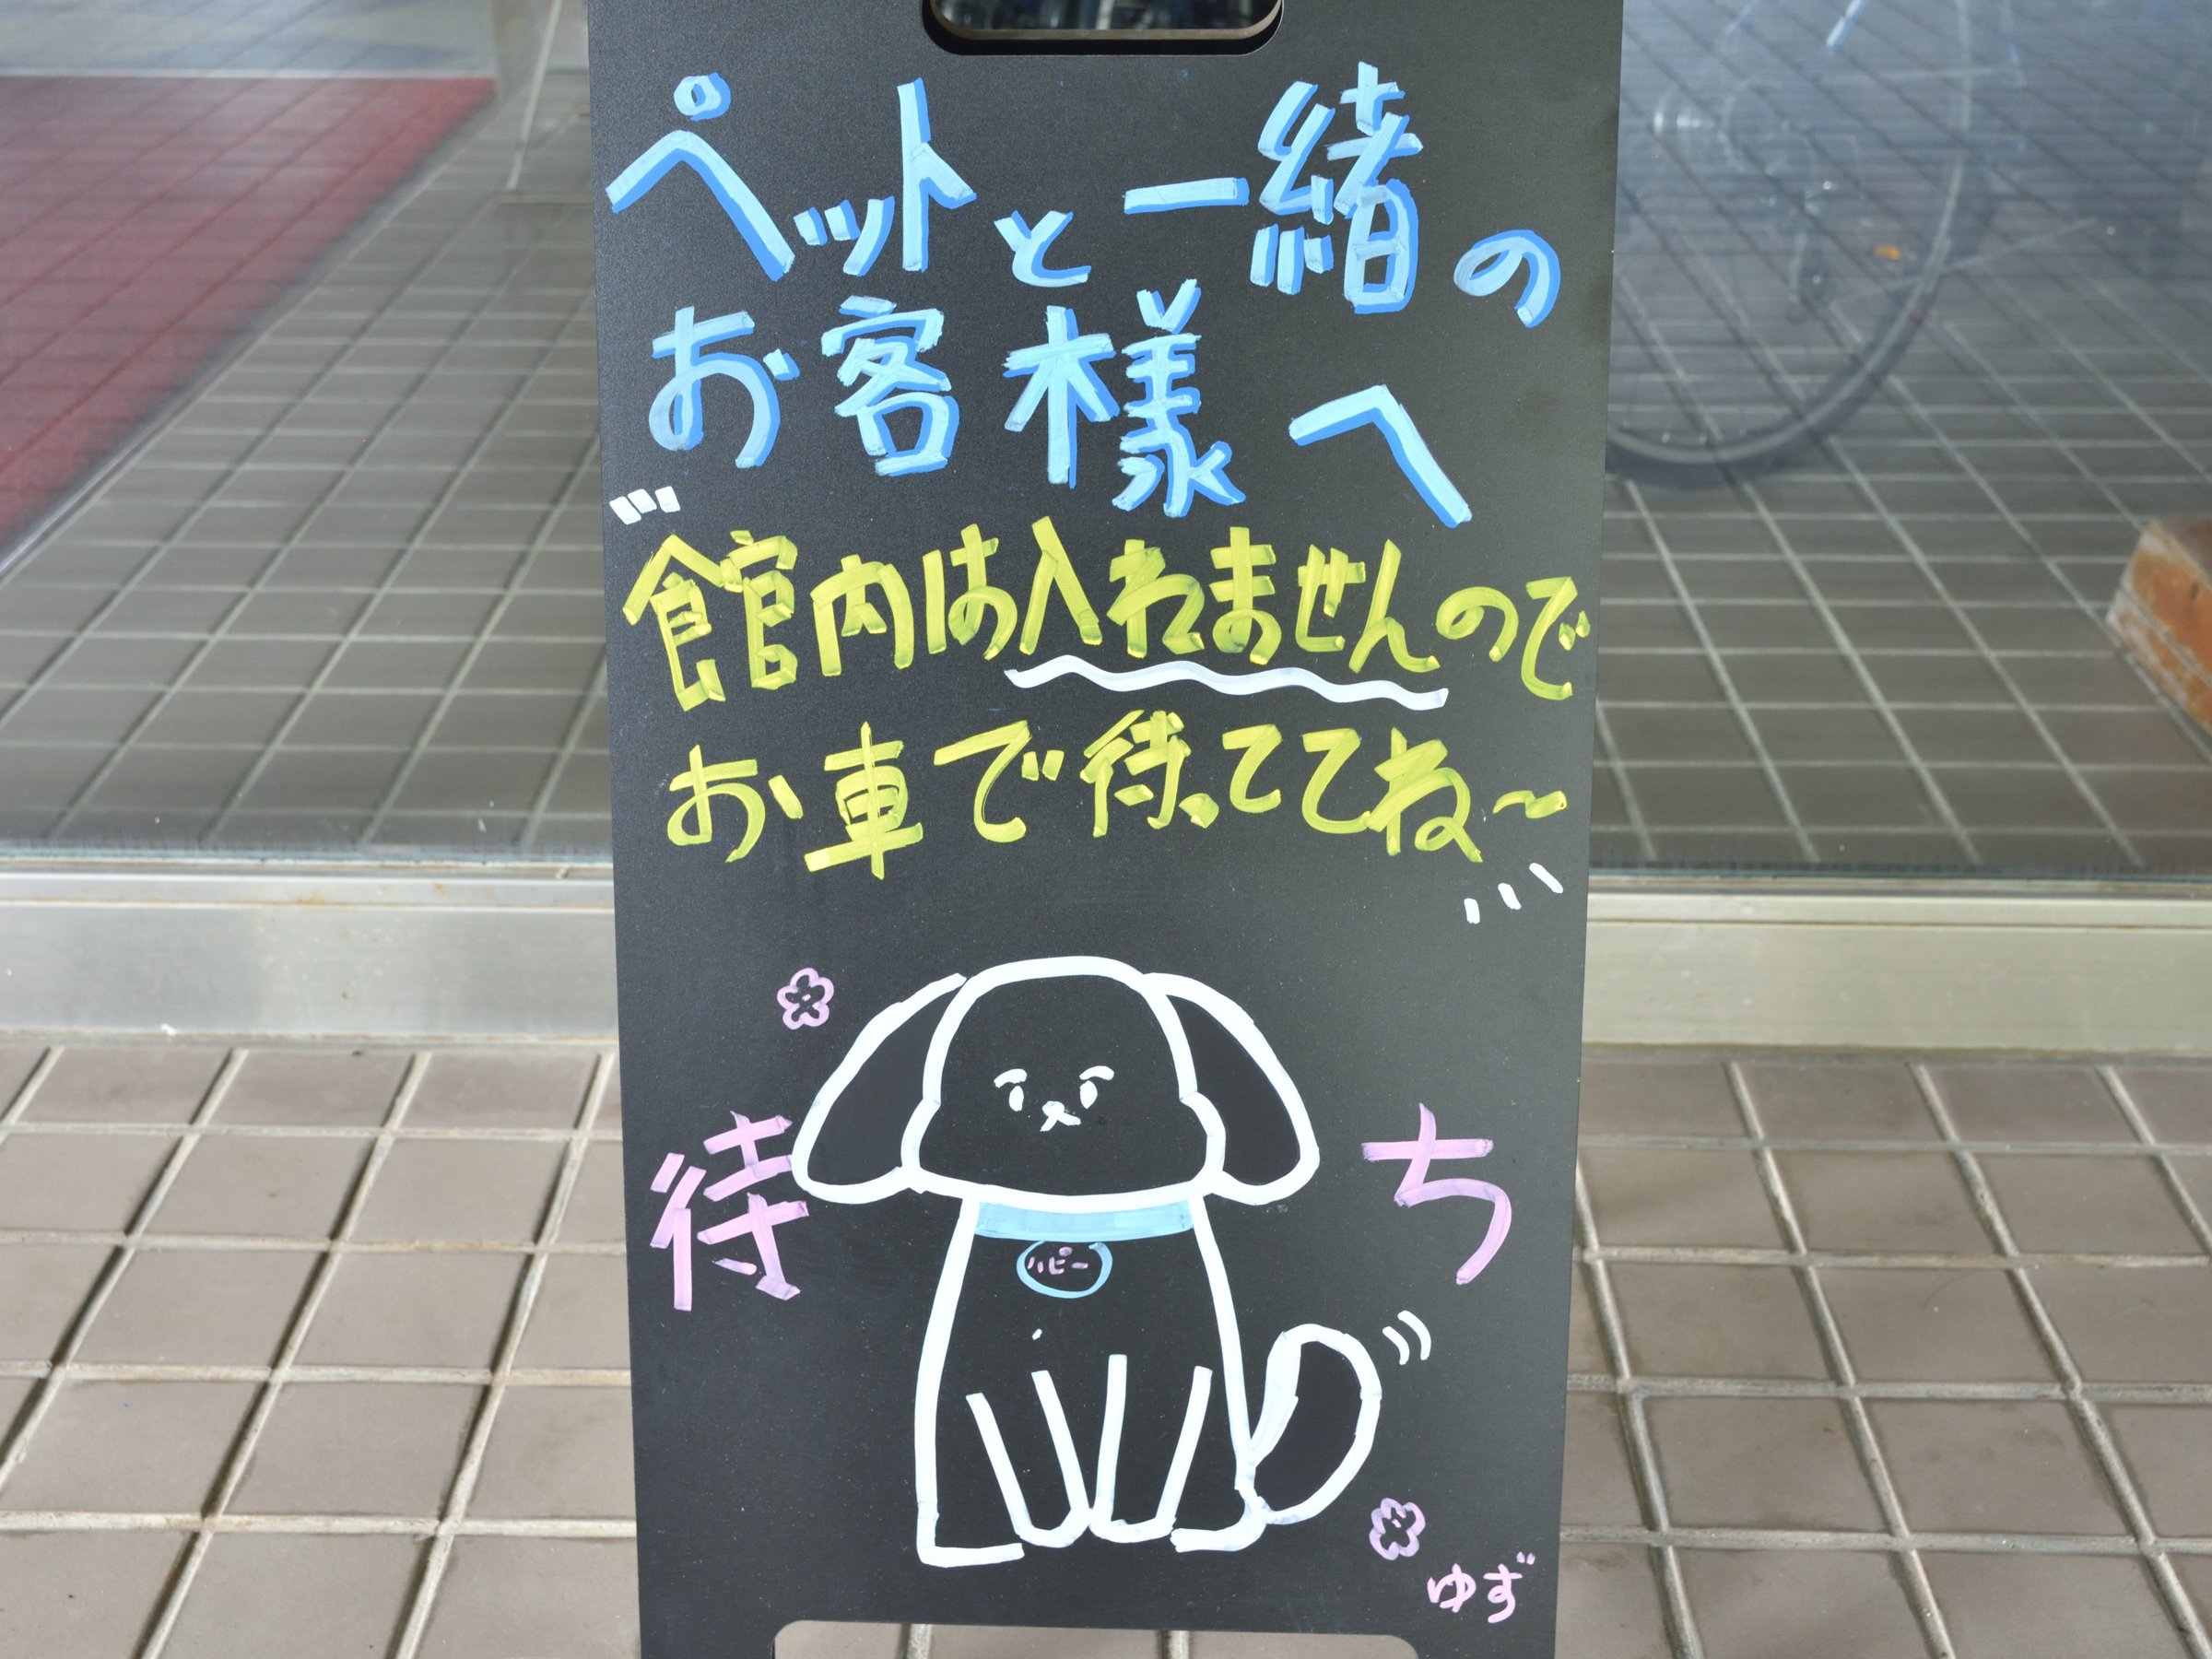 ペットと一緒の
お客様へ
館内は入れませんので
お車で待っててね〜
待ち
ハピー
ゆず